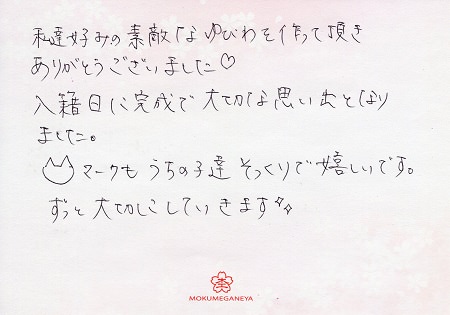 私達好みの素敵なゆびわを作って頂き
ありがとうございました♡
入籍日に完成で大切な思い出となり
ました。
マークも うちの子達 そっくりで嬉しいです。
ずっと大切にしていきます✨
MOKUMEGANEYA